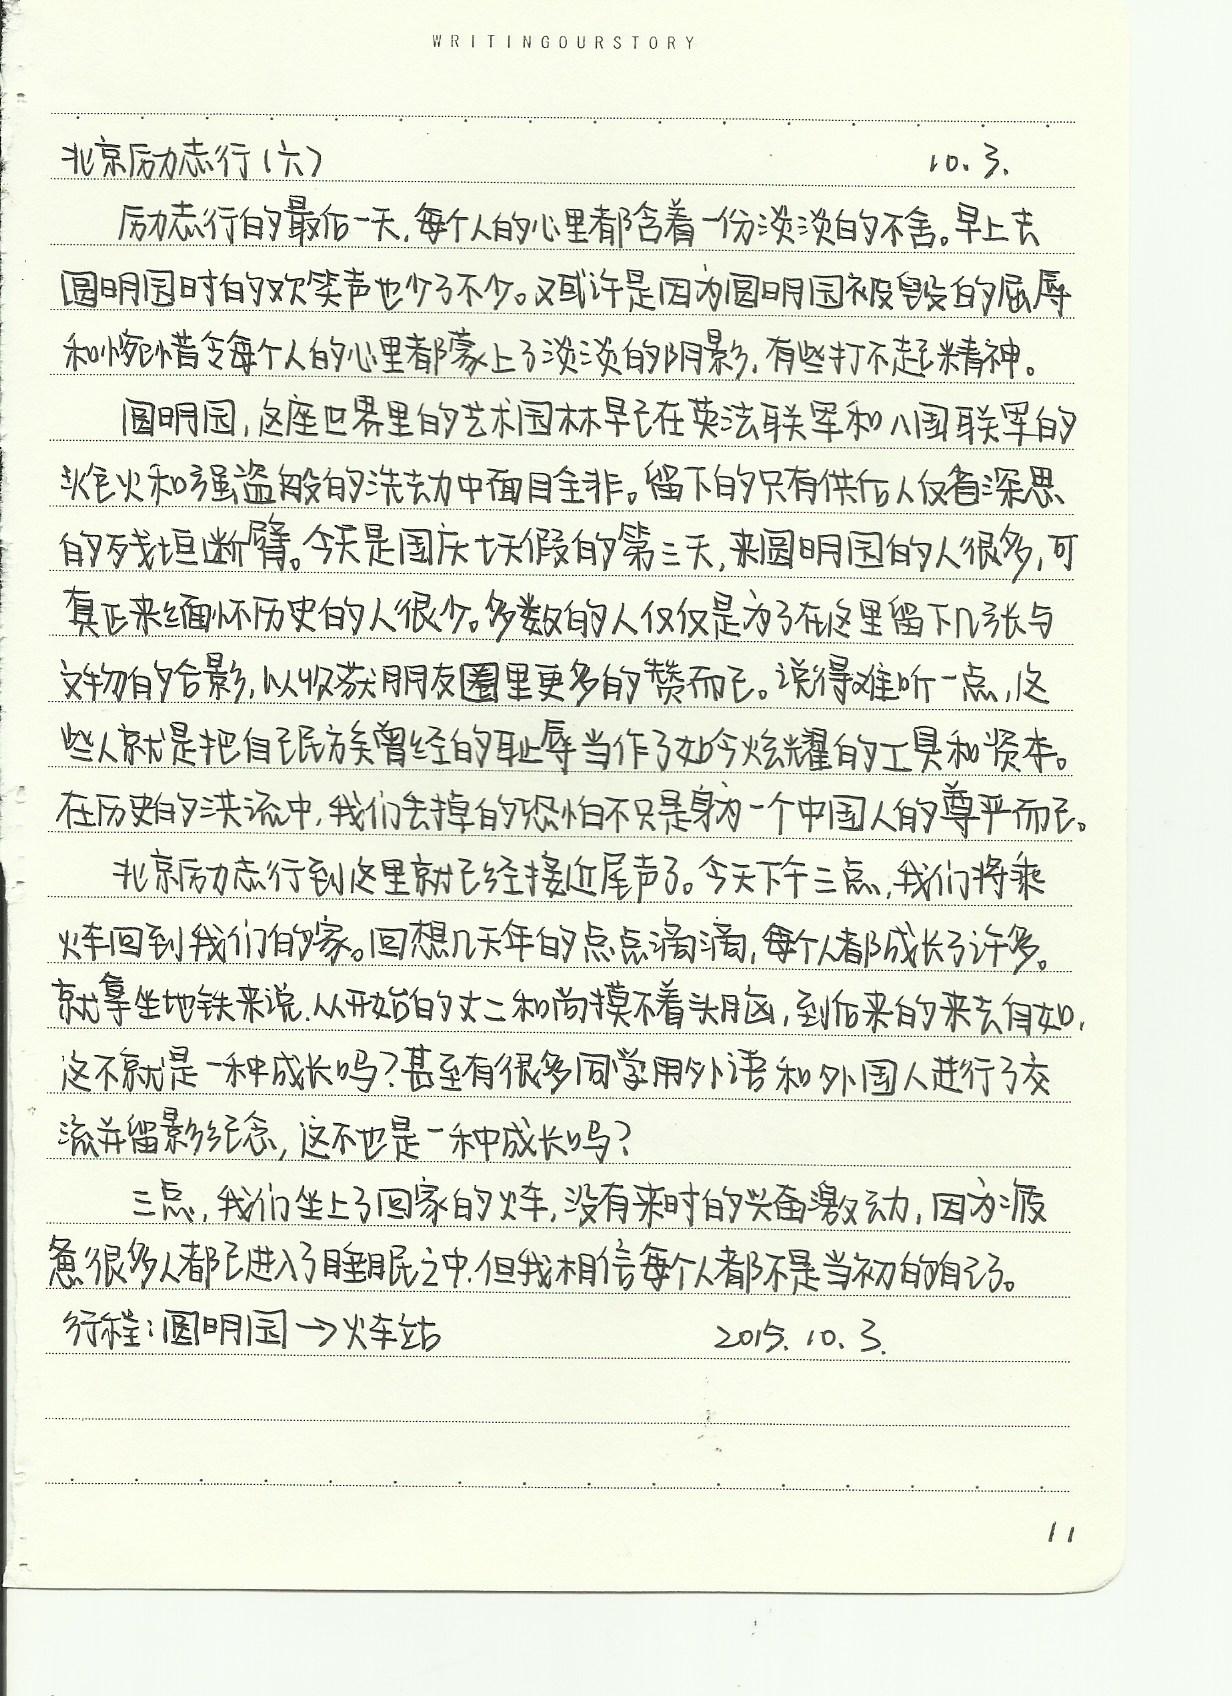 WRITINGOURSTORY
北京励志行(六) 10.3.
励志行的最后一天,每个人的心里都含着一份淡淡的不舍。早上去
圆明园时的欢笑声也少了不少。又或许是因为圆明园被毁的屈辱
和惋惜令每个人的心里都蒙上了淡淡的阴影,有些打不起精神。
圆明园,这座世界里的艺术园林早已在英法联军和八国联军的
炮火和强盗般的洗劫中面目全非。留下的只有供后人仅省深思
的残垣断臂。今天是国庆七天假的第三天,来圆明园的人很多,可
真正来缅怀历史的人很少。多数的人仅仅是为了在这里留下几张与
文物的合影,以收获朋友圈里更多的赞而已。说得难听一点,这
些人就是把自己民族曾经的耻辱当作了如今炫耀的工具和资本。
在历史的洪流中,我们丢掉的恐怕不只是身为一个中国人的尊严而已。
北京励志行到这里就已经接近尾声了。今天下午三点,我们将乘
火车回到我们的家。回想几天年的点点滴滴,每个人都成长了许多。
就拿坐地铁来说,从开始的丈二和尚摸不着头脑,到后来的来去自如,
这不就是一种成长吗?甚至有很多同学用外语和外国人进行了交
流并留影纪念,这不也是一种成长吗?
三点,我们坐上了回家的火车,没有来时的兴奋激动,因为疲
惫很多人都已进入了睡眠之中,但我相信每个人都不是当初的自己了。
行程:圆明园→火车站 2015.10.3.
11